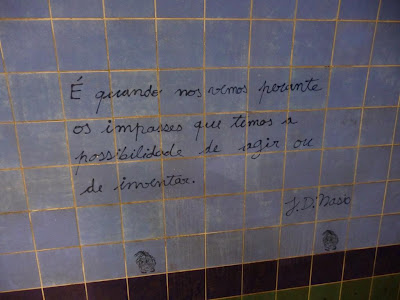 É quando nos vemos perante
os impasses que temos a
possibilidade de agir ou
de inventar.
J. D. Nasio